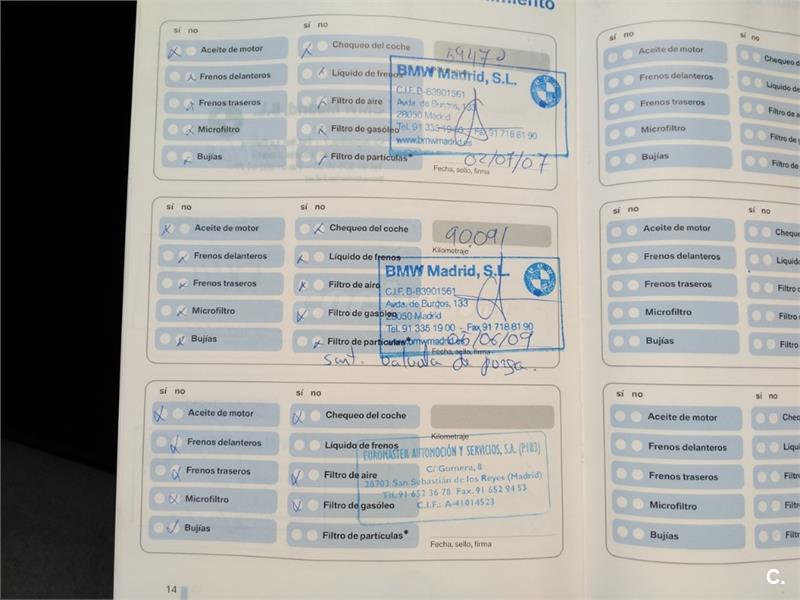 imiento
sí no
Aceite de motor
Frenos delanteros
Frenos traseros
Microfiltro
Bujías
sí no
Chequeo del coche
Líquido de frenos
Filtro de aire
Filtro de gasóleo
Filtro de partículas*
59470
BMW Madrid, S.L.
C.I.F. B-83901561
Avda. de Burgos, 133
28050 Madrid
Tel. 91 335 19 00 - Fax 91 718 81 90
www.bmwmadrid.es
02/07/07
Fecha, sello, firma
sí no
Aceite de motor
Frenos delanteros
Frenos traseros
Microfiltro
Bujías
sí no
Chequeo del coche
Líquido de frenos
Filtro de aire
Filtro de gasóleo
Filtro de partículas*
90.091
Kilometraje
BMW Madrid, S.L.
C.I.F. B-83901561
Avda. de Burgos, 133
28050 Madrid
Tel. 91 335 19 00 - Fax 91 718 81 90
www.bmwmadrid.es
05/06/09
Fecha, sello, firma
sust. valvula de purga.
sí no
Aceite de motor
Frenos delanteros
Frenos traseros
Microfiltro
Bujías
sí no
Chequeo del coche
Líquido de frenos
Filtro de aire
Filtro de gasóleo
Filtro de partículas*
Kilometraje
EUROMASTER AUTOMOCIÓN Y SERVICIOS, S.A. (P183)
C/ Gomera, 8
28703 San Sebastián de los Reyes (Madrid)
Tél. 91 652 36 78 Fax. 91 652 94 53
C.I.F.: A-41014523
Fecha, sello, firma
14
sí no
Aceite de motor
Frenos delanteros
Frenos traseros
Microfiltro
Bujías
sí no
Chequeo d
Líquido de
Filtro de a
Filtro de g
Filtro de
sí no
Aceite de motor
Frenos delanteros
Frenos traseros
Microfiltro
Bujías
sí no
Cheque
Líquid
Filtro
Filtro
Filtro
sí no
Aceite de motor
Frenos delanteros
Frenos traseros
Microfiltro
Bujías
sí no
Filtr
Filt
C.